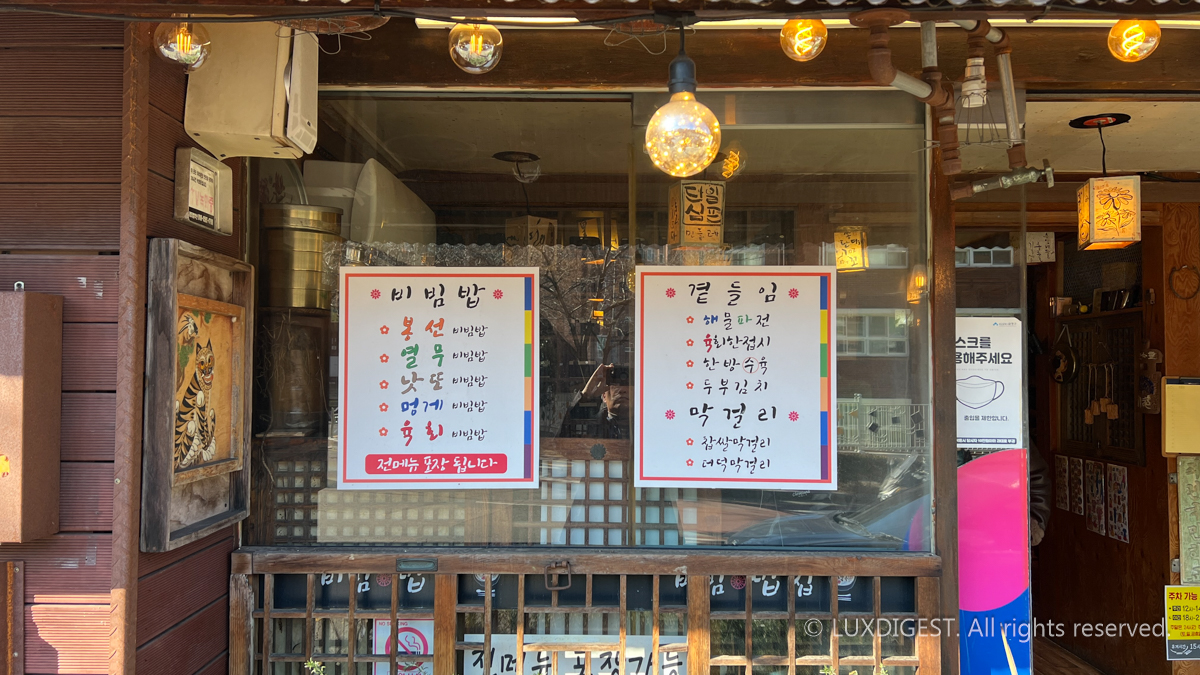 비빔밥
봉선 비빔밥
열무 비빔밥
낫또 비빔밥
멍게 비빔밥
육회 비빔밥
전메뉴 포장 됩니다
곁들임
해물파전
육회한접시
한방수육
두부김치
막걸리
찹쌀막걸리
더덕막걸리
단일
십프
만들데
스크를
용해주세요
출입을 제한합니다.
비빔밥집
전메뉴 포장가능
주차 가능
© LUXDIGEST. All rights reserved.